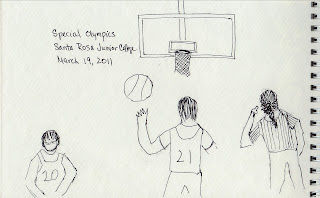 Special Olympics
Santa Rosa Junior College
March 19, 2011
20
21